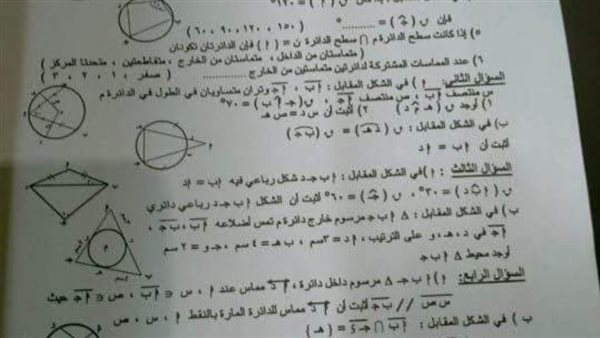 فإن ق ( جـ ) = ............ ° ( ١٥٠ ، ١٢٠ ، ٩٠ ، ٦٠ )
٥) إذا كانت سطح الدائرة م ∩ سطح الدائرة ن = { أ } فإن الدائرتان تكونان
( متماستان من الداخل ، متماستان من الخارج ، متقاطعتين ، متحدتا المركز )
٦) عدد المماسات المشتركة لدائرتين متماستين من الخارج ............ ( صفر ، ١ ، ٢ ، ٣ )
السؤال الثاني: أ) في الشكل المقابل : أب ، أجـ وتران متساويان في الطول في الدائرة م
س منتصف أب ، ص منتصف أجـ ، ق ( جـ أ ب ) = ٧٠°
١) أوجد ق ( د م هـ ) ٢) أثبت أن س د = ص هـ
ب) في الشكل المقابل : ق ( د هـ ) = ق ( ب جـ )
أثبت أن أب = أد
السؤال الثالث: أ) في الشكل المقابل : أب جـ د شكل رباعي فيه أب = أد
ق ( أ ب د ) = ٣٠° ، ق ( جـ ) = ٦٠° أثبت أن الشكل أب جـ د رباعي دائري
ب) في الشكل المقابل : Δ أ ب جـ مرسوم خارج دائرة م تمس أضلاعه أب ، ب جـ ،
أجـ في د ، هـ ، و على الترتيب ، أد = ٣سم ، ب هـ = ٤ سم ، جـ و = ٢ سم
أوجد محيط Δ أب جـ
السؤال الرابع: أ) أ ب جـ Δ مرسوم داخل دائرة ، أد مماس عند أ ، س ∈ أب ، ص ∈ أجـ حيث
س ص // ب جـ أثبت أن أد مماس للدائرة المارة بالنقط أ ، س ، ص
ب) في الشكل المقابل : أب ∩ جـ د = { هـ }